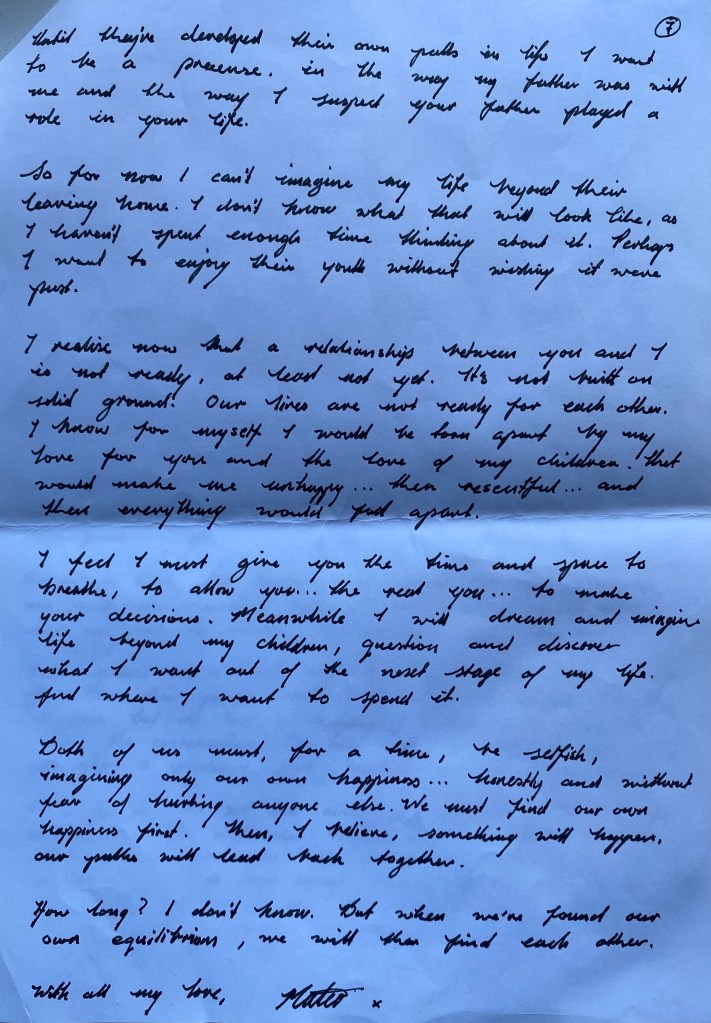 7
Until they've developed their own paths in life I want
to be a presense. in the way my father was with
me and the way I suspect your father played a
role in your life.
So for now I can't imagine my life beyond their
leaving home. I don't know what that will look like, as
I haven't spent enough time thinking about it. Perhaps
I want to enjoy their youth without wishing it were
past.
I realise now that a relationship between you and I
is not ready, at least not yet. It's not built on
solid ground. Our lives are not ready for each other.
I know for myself I would be torn apart by my
love for you and the love of my children. That
would make me unhappy... then resentful... and
then everything would fall apart.
I feel I must give you the time and space to
breathe, to allow you... the real you... to make
your decisions. Meanwhile I will dream and imagine
life beyond my children, question and discover
what I want out of the next stage of my life.
And where I want to spend it.
Both of us must, for a time, be selfish,
imagining only our own happiness... honestly and without
fear of hurting anyone else. We must find our own
happiness first. Then, I believe, something will happen,
our paths will lead back together.
How long? I don't know. But when we've found our
own equilibrium, we will then find each other.
With all my love, Mateo x